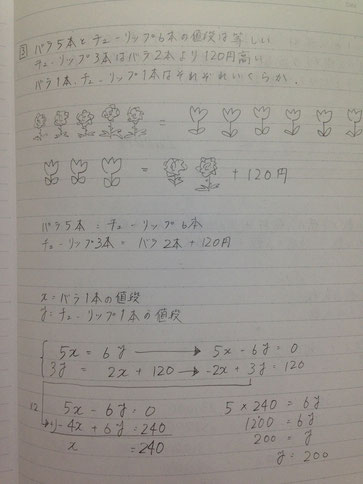 ③ バラ5本とチューリップ6本の値段は等しい
チューリップ3本はバラ2本より120円高い
バラ1本、チューリップ1本はそれぞれいくらか。
=
= + 120円
バラ5本 = チューリップ6本
チューリップ3本 = バラ2本 + 120円
x = バラ1本の値段
y = チューリップ1本の値段
5x = 6y → 5x - 6y = 0
3y = 2x + 120 → -2x + 3y = 120
5x - 6y = 0 5 × 240 = 6y
+) -4x + 6y = 240 1200 = 6y
x = 240 200 = y
y = 200